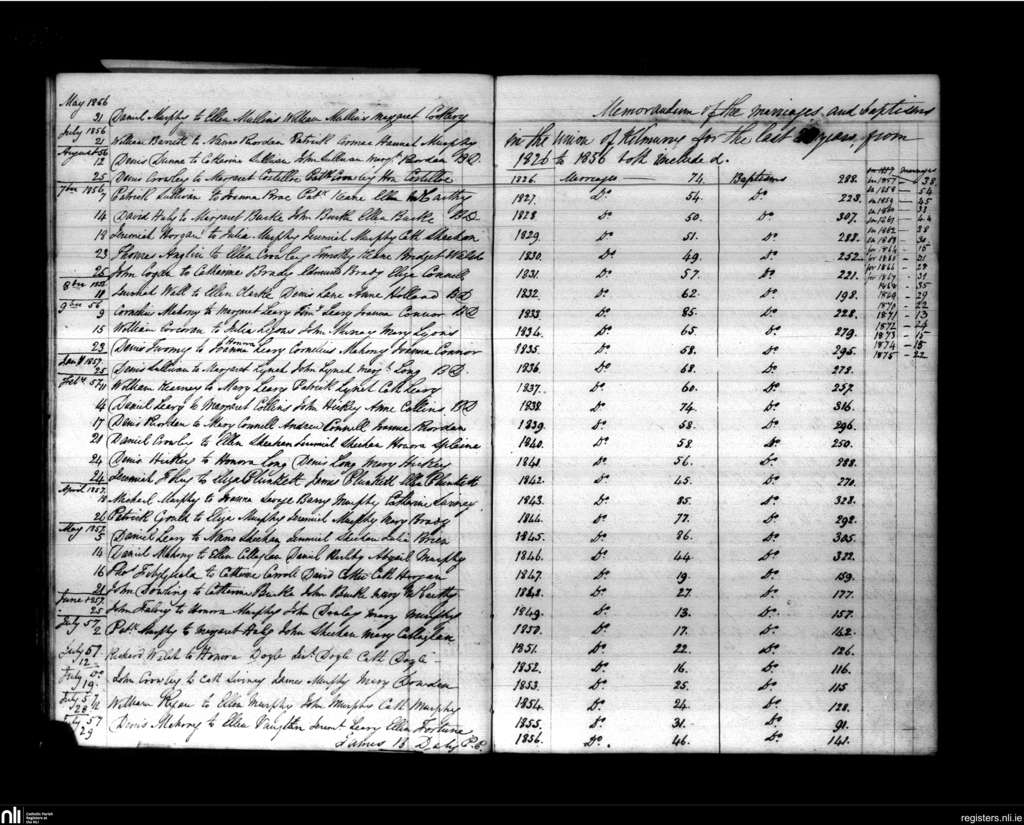 May 1856
21 Daniel Murphy to Ellen Mullens William Mullins Margaret
July 1856
21 William Barrett to Nano Riordan Patrick Hannah Murphy
August 56
12 Denis Dunne to Catherine Sullivan John Sullivan Margt Riordan BD
25 Denis Crowley to Margaret Costelloe Patk Crowley Hon Costelloe
7ber 1856
7 Patrick Sullivan to Joanna Brae Patk Keane Ellen McCarthy
14 David Haly to Margaret Burke John Burke Ellen Burke BD
18 Jeremiah Horgan to Julia Murphy Jeremiah Murphy Cath Sheehan
23 Thomas Anglin to Ellen Crowley Timothy Bridget Walsh
25 John Cogan to Catherine Brady Edmund Brady Eliza Connell
8ber 1856
18 Jeremiah Walt to Ellen Clarke Denis Lane Anne Holland BD
9ber 56
9 Cornelius Mahony to Margaret Leary Leary Joanna Connor BD
15 William Corcoran to Julia Lyons John Mary Lyons
Honora
23 Denis Twomey to Joanna Leary Cornelius Mahony Joanna Connor
Jany 1857
25 Denis Sullivan to Margaret Lynch John Lynch Margt Long BD
Feby 57
11 William Kearney to Mary Leary Patrick Lynch Cath Leary
14 Daniel Leary to Margaret Collins John Hickey Anne Collins BD
17 Denis Riordan to Mary Connell Andrew Connell Joanna Riordan
21 Daniel Crowley to Ellen Sheehan Jeremiah Sheehan Honora Splaine
24 Denis Hickey to Honora Long Denis Long Mary Hickey
24 Jeremiah to Eliza Plunkett James Plunkett Ellen Plunkett
April 1857
18 Michael Murphy to Joanna Savage Barry Murphy Catherine Swiney
26 Patrick Gould to Eliza Murphy Jeremiah Murphy Mary Brady
May 1857
5 Daniel Leary to Nano Sheehan Jeremiah Sheehan Julia Brien
14 Daniel Mahony to Ellen Callaghan Daniel Abigail Murphy
16 Thos to Catherine Carroll David Cath Horgan
21 John Dowling to Catherine Burke John Burke Mary McCarthy
June 1857
25 John Falvey to Honora Murphy John Mary Murphy
July 57
2 Patk Murphy to Margaret Haly John Sheehan Mary Callaghan
July 57
12 Richard Walsh to Honora Doyle Doyle Cath Doyle
July Do
19 John Crowley to Cath Swiney James Murphy Mary
July 57
28 William Ryan to Ellen Murphy John Murphy Cath Murphy
July 57
29 Denis Mahony to Ellen Vaughan Leary Ellen Fortune
James B Daly P.P.
Memorandum of the marriages and baptisms
in the union of Kilmurry for the last years from
1826 to 1856 both included.
1826. Marriages 74. Baptisms 288.
1827. Do 54. Do 223.
1828. Do 50. Do 307.
1829. Do 51. Do 288.
1830. Do 49. Do 252.
1831. Do 57. Do 221.
1832. Do 62. Do 198.
1833. Do 85. Do 228.
1834. Do 65. Do 279.
1835. Do 58. Do 295.
1836. Do 68. Do 278.
1837. Do 60. Do 257.
1838. Do 74. Do 316.
1839. Do 58. Do 296.
1840. Do 58. Do 250.
1841. Do 56. Do 288.
1842. Do 45. Do 270.
1843. Do 85. Do 328.
1844. Do 77. Do 292.
1845. Do 86. Do 305.
1846. Do 44. Do 322.
1847. Do 19. Do 159.
1848. Do 27. Do 177.
1849. Do 13. Do 157.
1850. Do 17. Do 142.
1851. Do 22. Do 126.
1852. Do 16. Do 116.
1853. Do 25. Do 115
1854. Do 24. Do 128.
1855. Do 31. Do 91.
1856. Do 46. Do 141.
marriages
in 1857 - 38
in 1858 - 54
in 1859 - 45
in 1860 - 33
in 1861 - 44
in 1862 - 28
in 1863 - 30
for 1864 - 15
for 1865 - 21
for 1866 - 28
for 1867 - 31
1868 - 35
1869 - 29
1870 - 22
1871 - 13
1872 - 24
1873 - 15
1874 - 15
1875 - 22
nli
Catholic Parish
Registers at
the NLI
registers.nli.ie